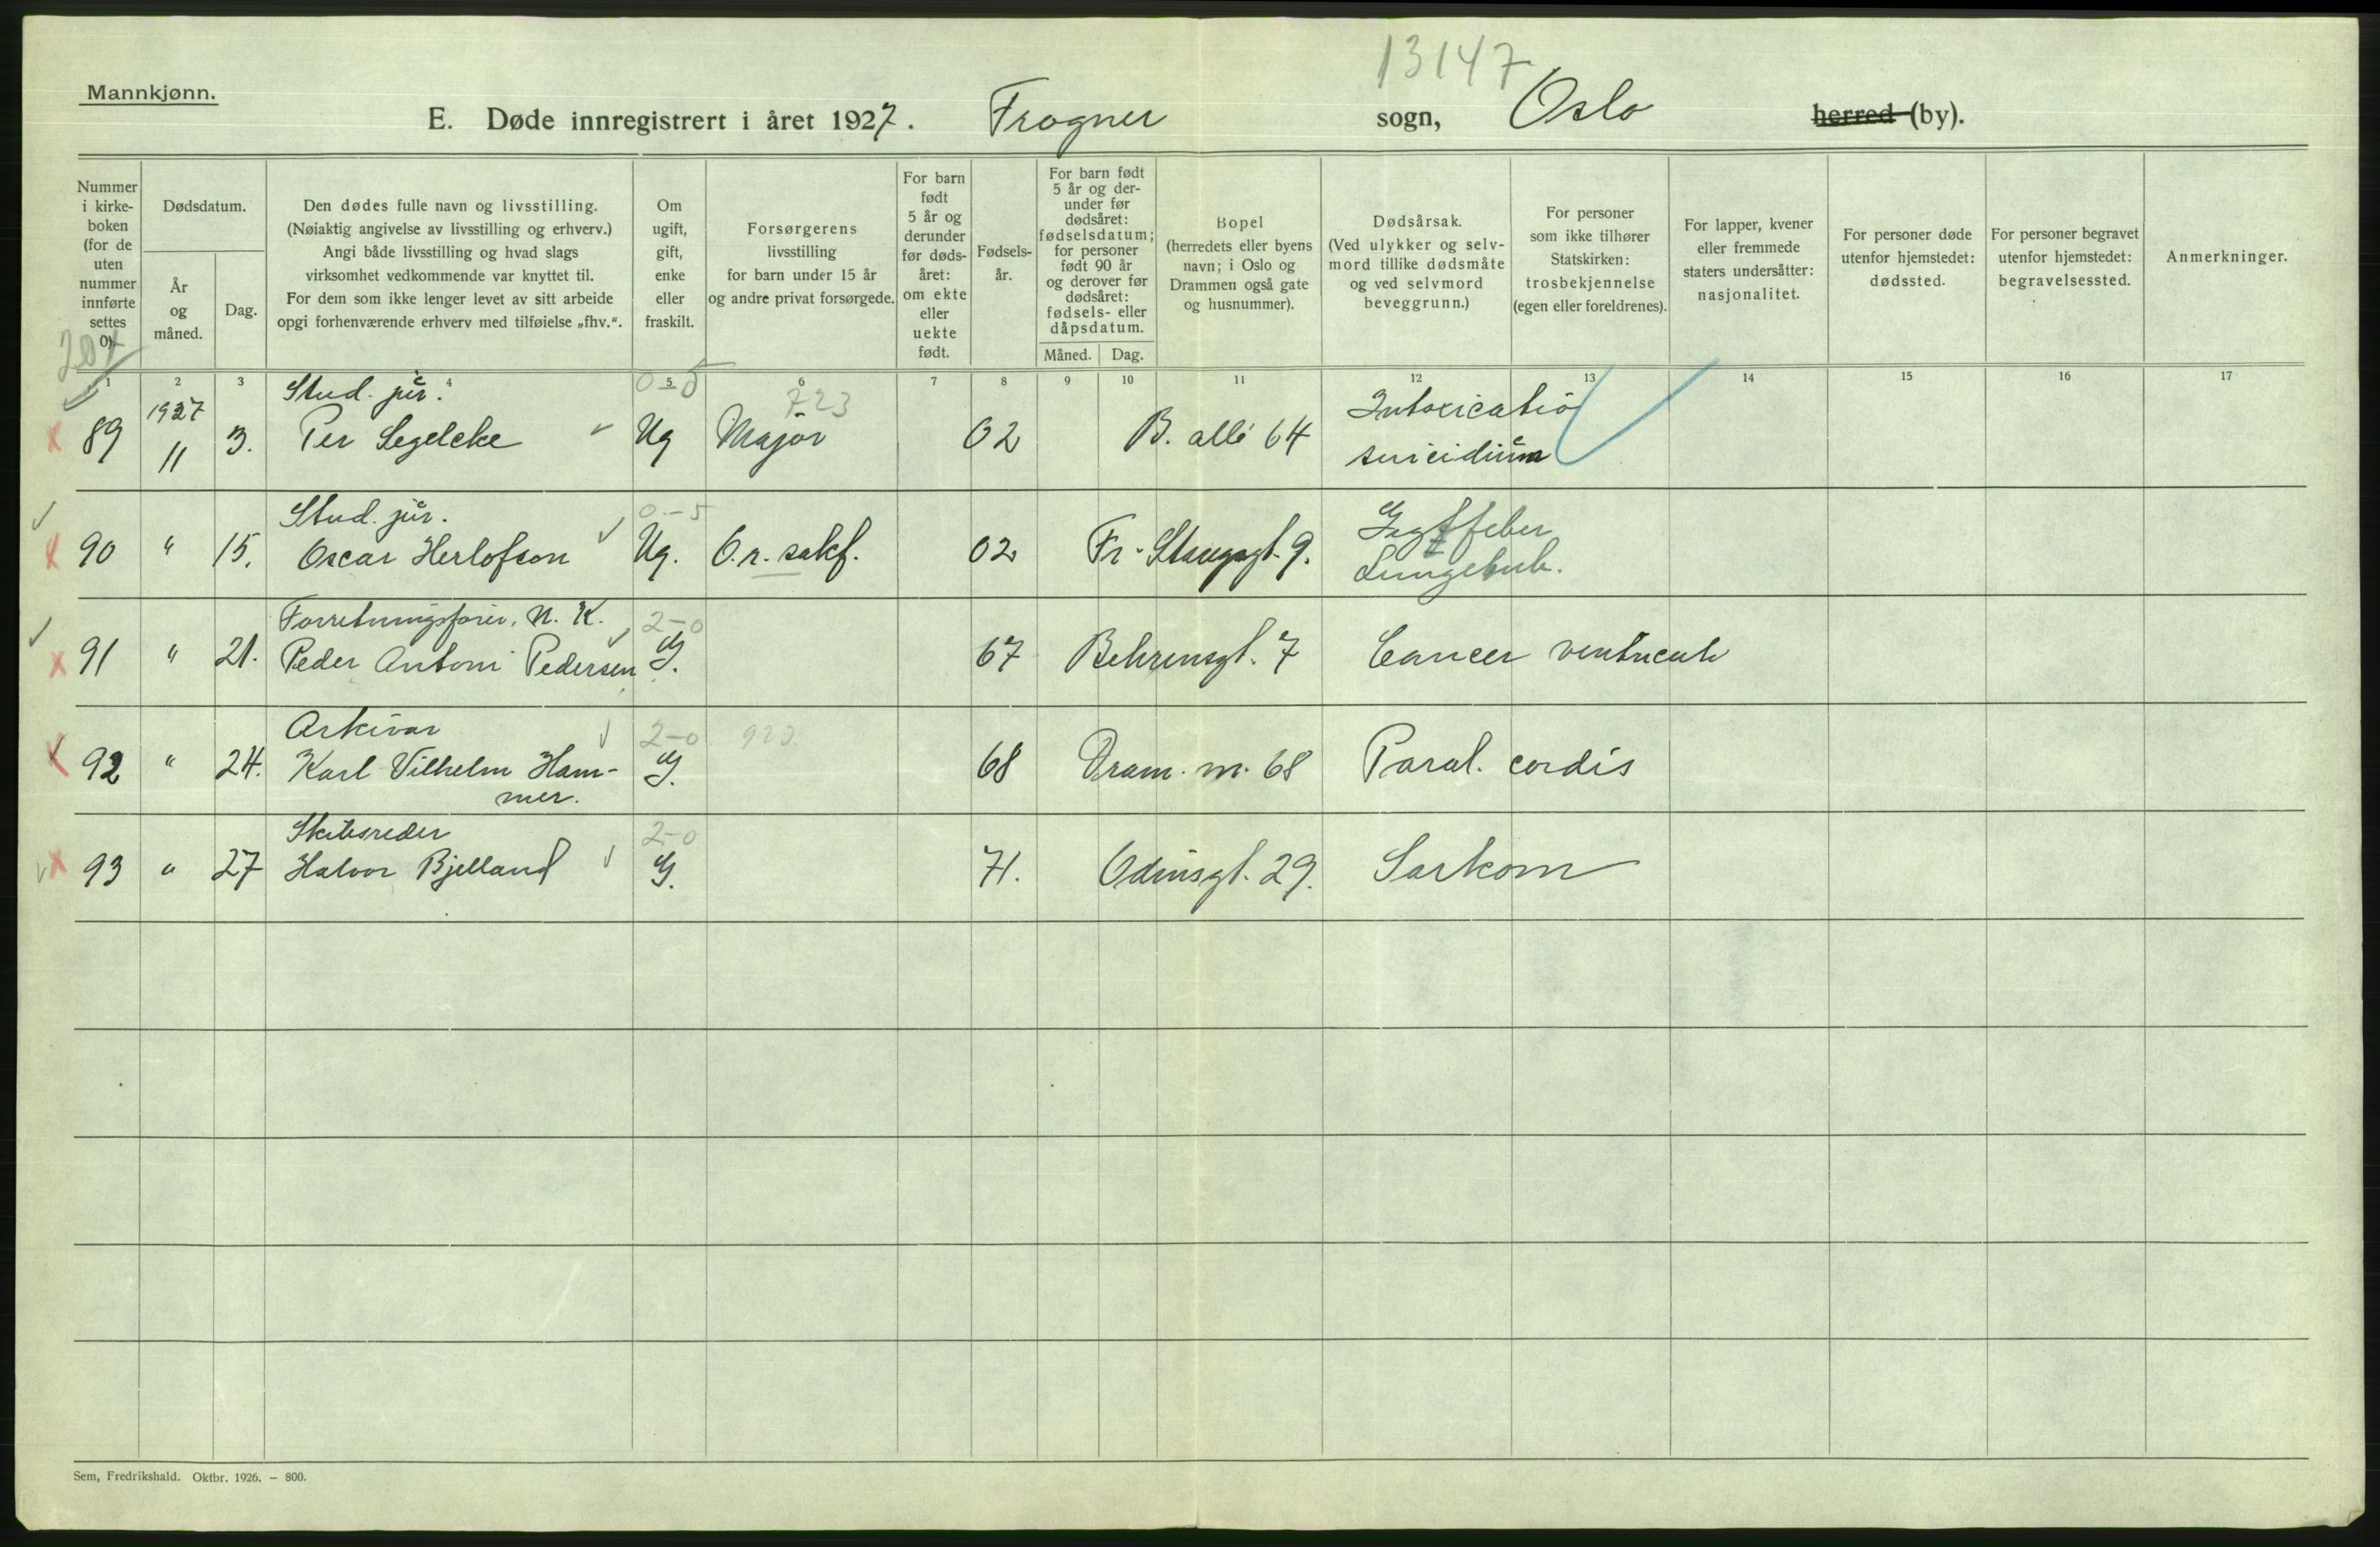 13147
Mannkjønn.
E. Døde innregistrert i året 1927. Frogner sogn, Oslo herred (by).
Nummer i kirke-boken (for de uten nummer innførte settes 0).
Dødsdatum.
År og måned.
Dag.
Den dødes fulle navn og livsstilling.
(Nøiaktig angivelse av livsstilling og erhverv.)
Angi både livsstilling og hvad slags
virksomhet vedkommende var knyttet til.
For dem som ikke lenger levet av sitt arbeide
opgi forhenværende erhverv med tilføielse „fhv.“.
Om ugift, gift, enke eller fraskilt.
Forsørgerens
livsstilling
for barn under 15 år
og andre privat forsørgede.
For barn født 5 år og derunder før døds-året: om ekte eller uekte født.
Fødsels-år.
For barn født 5 år og der-under før dødsåret: fødselsdatum; for personer født 90 år og derover før dødsåret: fødsels- eller dåpsdatum.
Måned. Dag.
Bopel
(herredets eller byens
navn; i Oslo og
Drammen også gate
og husnummer).
Dødsårsak.
(Ved ulykker og selv-
mord tillike dødsmåte
og ved selvmord
beveggrunn.)
For personer
som ikke tilhører
Statskirken:
trosbekjennelse
(egen eller foreldrenes).
For lapper, kvener
eller fremmede
staters undersåtter:
nasjonalitet.
For personer døde
utenfor hjemstedet:
dødssted.
For personer begravet
utenfor hjemstedet:
begravelsessted.
Anmerkninger.
1 2 3 4 5 6 7 8 9 10 11 12 13 14 15 16 17
Stud. jur. 0-5 723 Intoxicatio
89 1927 11 3. Per Segelcke Ug Major 02 B. allé 64 suicidium
Stud. jur. 0-5 Gigtfeber
90 " 15. Oscar Herlofson Ug. O.r. sakf. 02 Fr. Stangsgt. 9.
Forretningsfører, N. K. 2-0
91 " 21. Peder Antoni Pedersen G. 67 Behrensgt. 7 Cancer ventriculi
Arkivar 2-0
92 " 24. Karl Vilhelm Ham-
mer. G. 68 Dram. v. 68 Paral. cordis
Skibsreder 2-0
93 " 27 Halvor Bjelland G. 71. Odinsgt. 29. Sarkom
Sem, Fredrikshald. Oktbr. 1926. — 800.